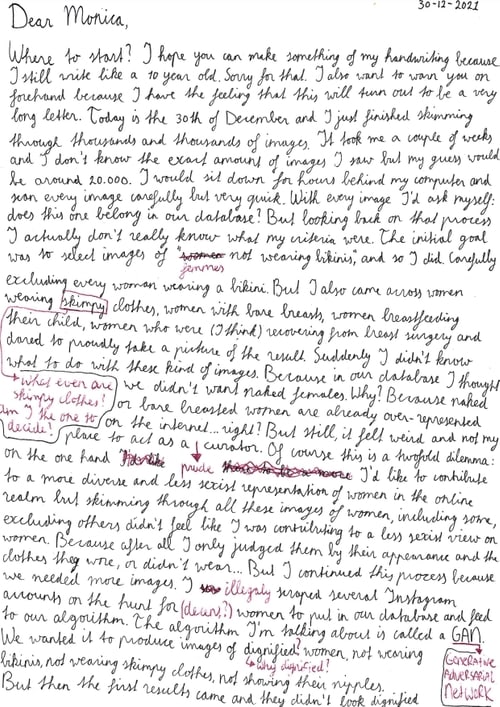 30-12-2021
Dear Monica,
Where to start? I hope you can make something of my handwriting because
I still write like a 10 year old. Sorry for that. I also want to warn you on
forehand because I have the feeling that this will turn out to be a very
long letter. Today is the 30th of December and I just finished skimming
through thousands and thousands of images. It took me a couple of weeks
and I don't know the exact amount of images I saw but my guess would
be around 20.000. I would sit down for hours behind my computer and
scan every image carefully but very quick. With every image I'd ask myself:
does this one belong in our database? But looking back on that process
I actually don't really know what my criteria were. The initial goal
was to select images of "women not wearing bikinis", and so I did. Carefully
femmes
excluding every woman wearing a bikini. But I also came across women
wearing skimpy clothes, women with bare breasts, women breastfeeding
their child, women who were (I think) recovering from breast surgery and
dared to proudly take a picture of the result. Suddenly I didn't know
what to do with these kind of images. Because in our database I thought
what ever are
skimpy clothes?
am I the one to
decide?
we didn't want naked females. Why? Because naked
or bare breasted women are already over-represented
on the internet... right? But still, it felt weird and not my
place to act as a curator. Of course this is a twofold dilemma:
on the one hand prude I'd like to contribute
to a more diverse and less sexist representation of women in the online
realm but skimming through all these images of women, including some,
excluding others didn't feel like I was contributing to a less sexist view on
women. Because after all I only judged them by their appearance and the
clothes they wore, or didn't wear... But I continued this process because
we needed more images. I illegaly scraped several Instagram
accounts on the hunt for (decent?) women to put in our database and feed
to our algorithm. The algorithm I'm talking about is called a GAN.
We wanted it to produce images of dignified women, not wearing
why dignified?
bikinis, not wearing skimpy clothes, not showing their nipples.
But then the first results came and they didn't look dignified
GENERATIVE
ADVERSARIAL
NETWORK